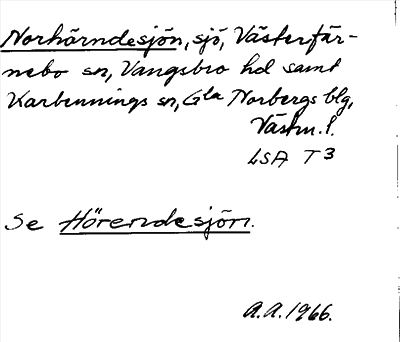 Norhörndesjön, sjö, Västerfär-
nebo sn, Vangsbro hd samt
Karbennings sn, Gla Norbergs blg,
Västm. l.
LSA T3
Se Hörendesjön.
A.A. 1966.